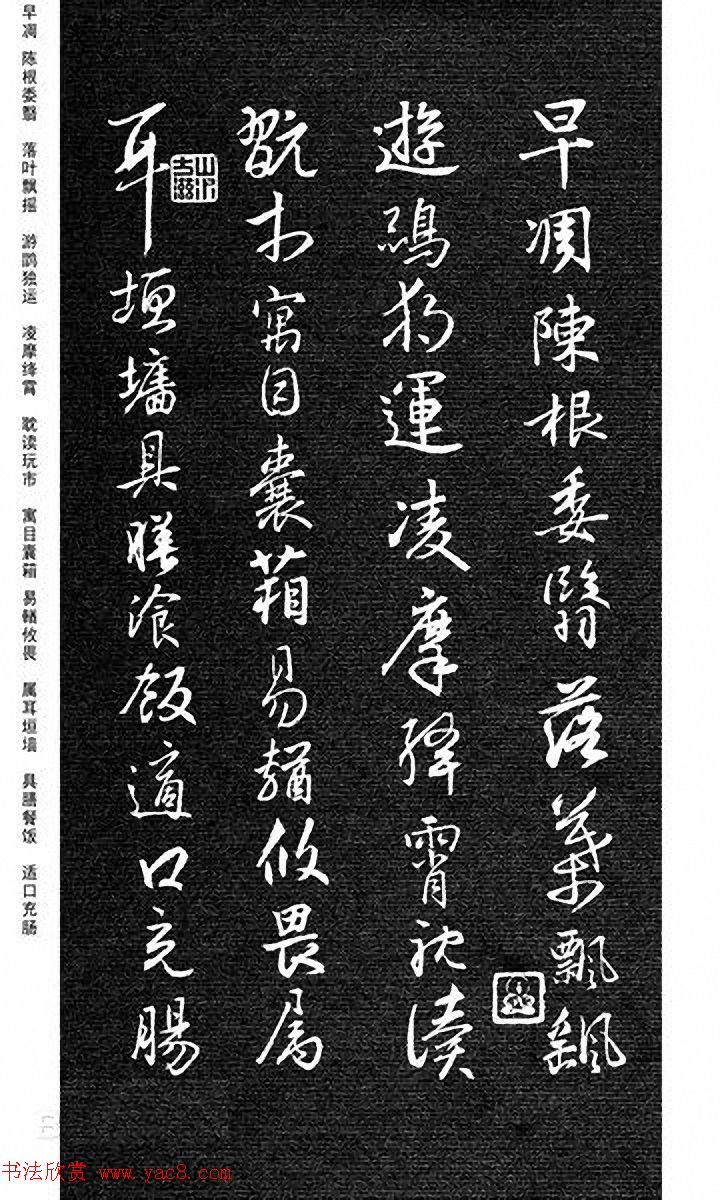 早凋陳根委翳落葉飄飖
遊鵾獨運凌摩絳霄耽讀
翫市寓目囊箱易輶攸畏属
耳垣墻具膳飡飯適口充腸
早凋 陈根委翳 落叶飘摇 游鹍独运 凌摩绛霄 耽读玩市 寓目囊箱 易輶攸畏 属耳垣墙 具膳餐饭 适口充肠
书法欣赏 www.yac8.com